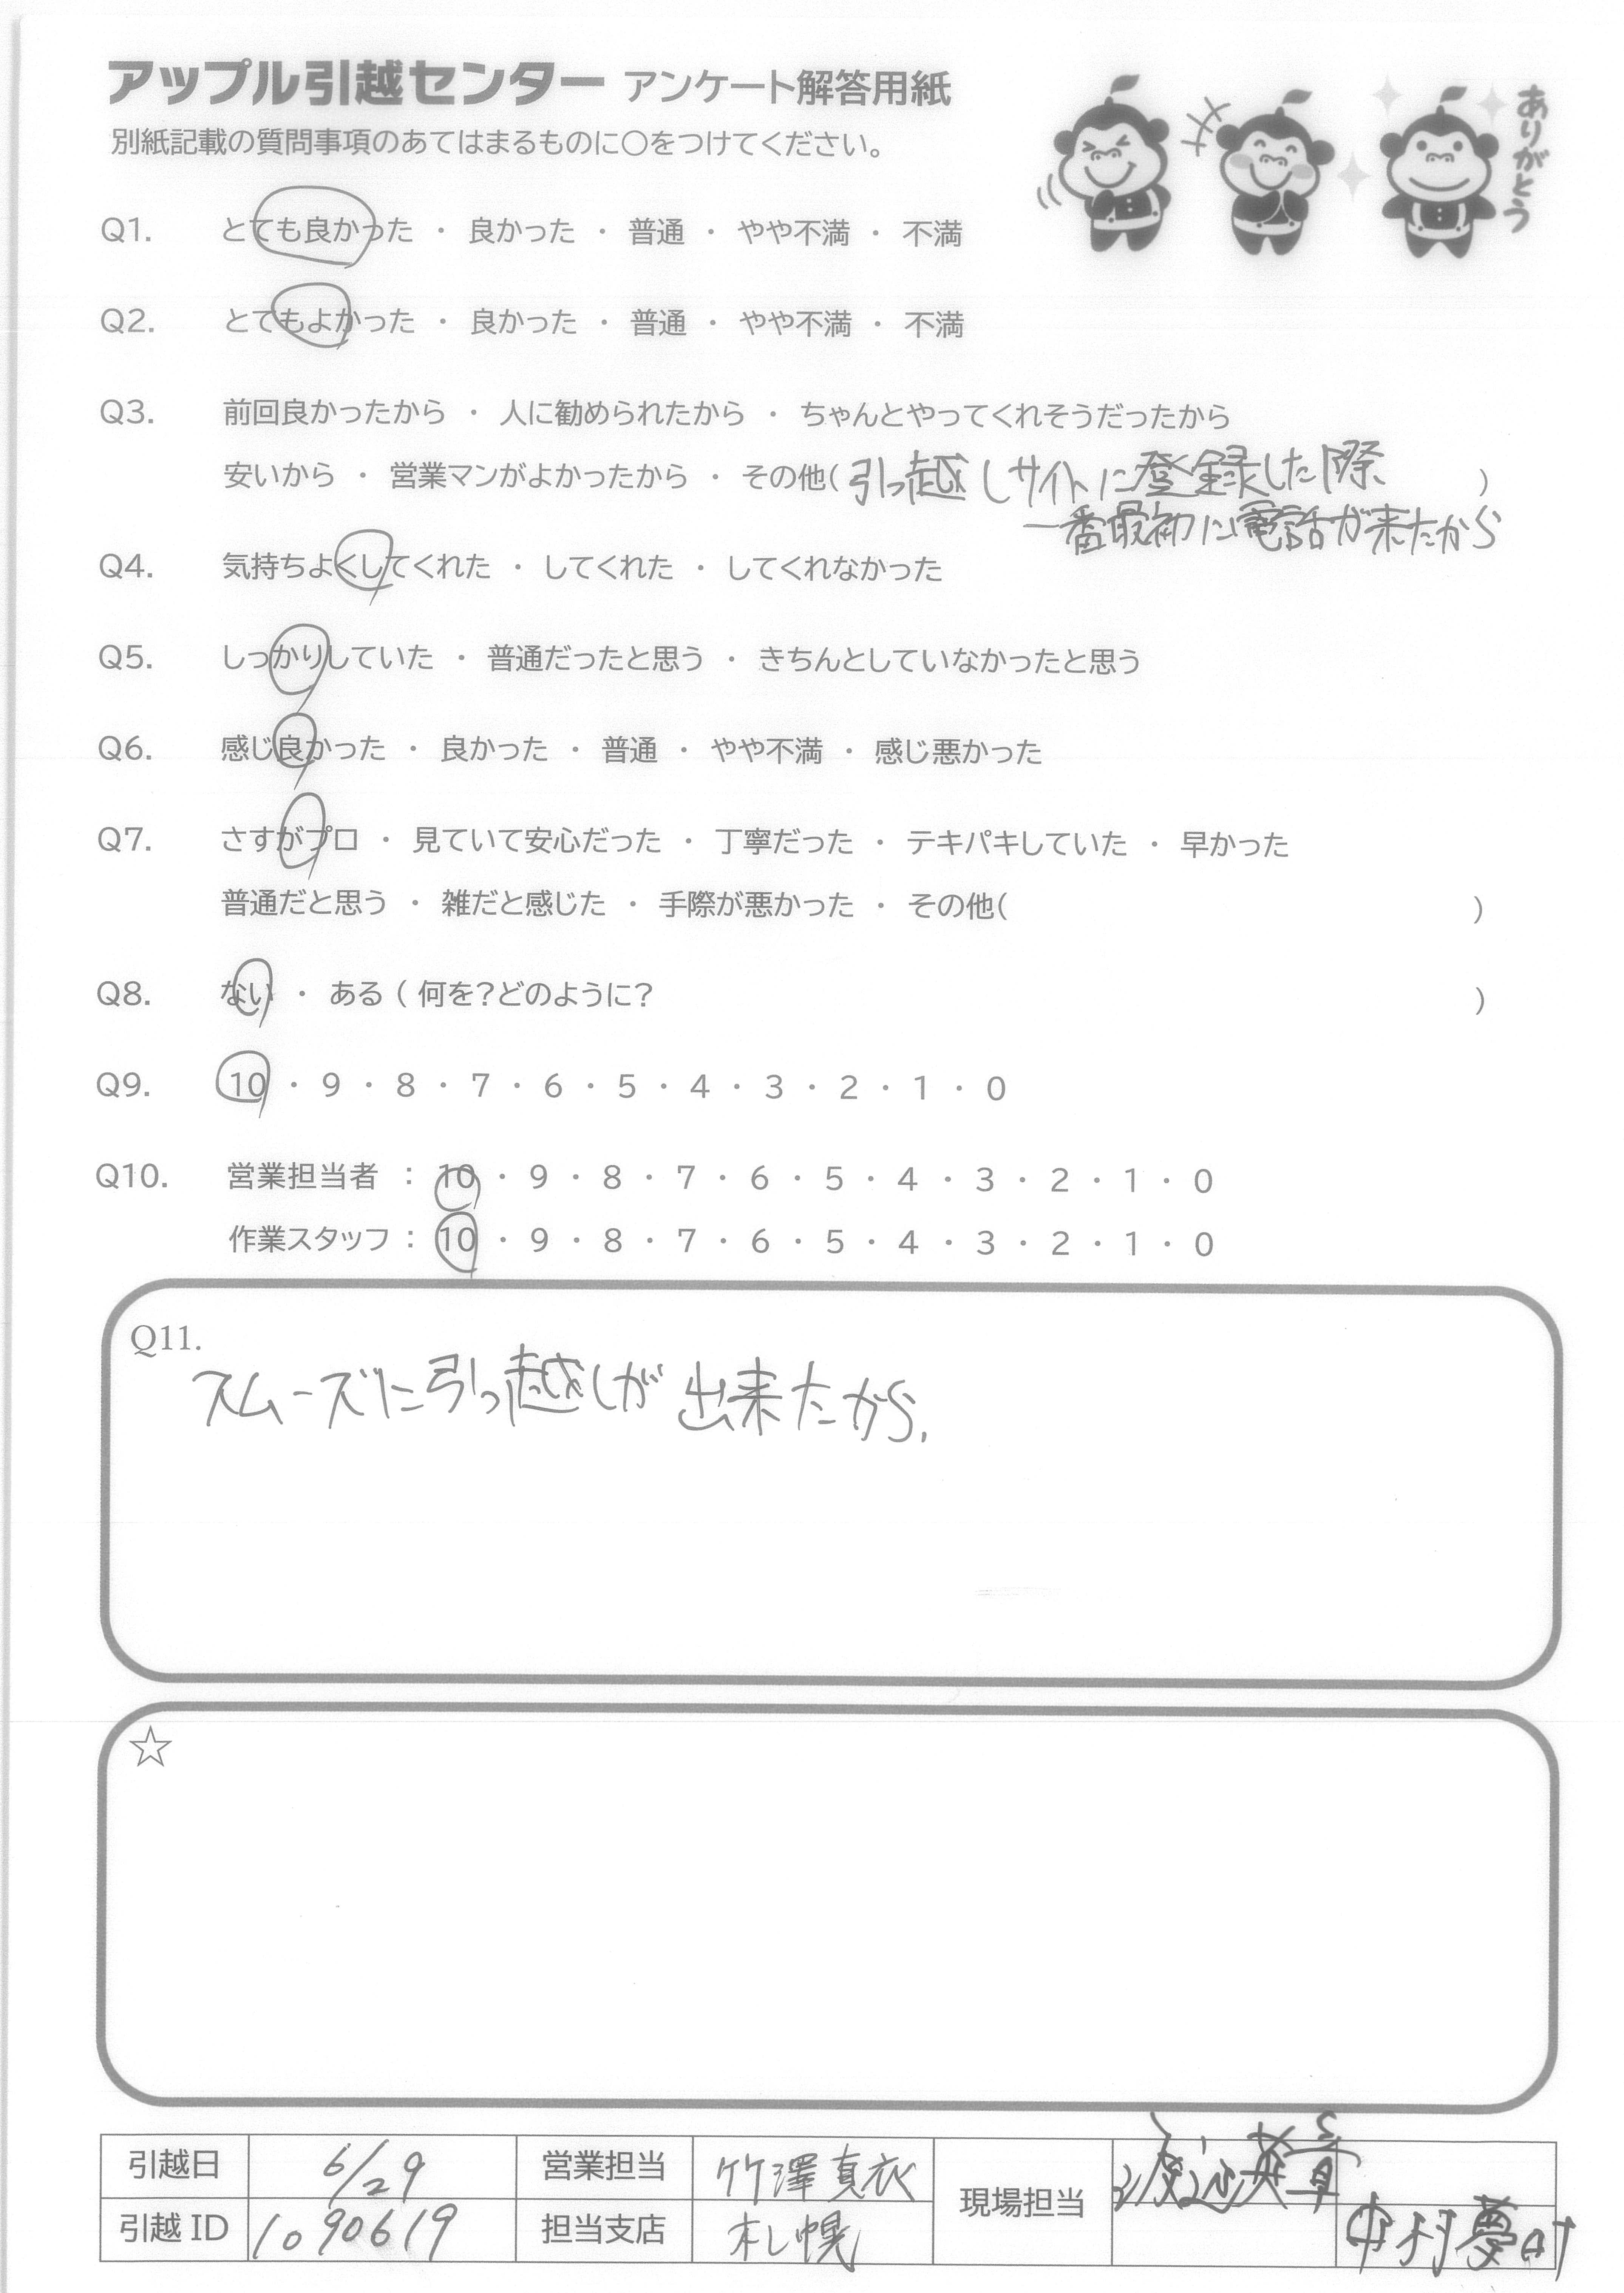 アップル引越センター アンケート解答用紙
別紙記載の質問事項のあてはまるものに○をつけてください。
ありがとう
Q1. とても良かった ・ 良かった ・ 普通 ・ やや不満 ・ 不満
Q2. とてもよかった ・ 良かった ・ 普通 ・ やや不満 ・ 不満
Q3. 前回良かったから ・ 人に勧められたから ・ ちゃんとやってくれそうだったから
安いから ・ 営業マンがよかったから ・ その他( 引っ越しサイトに登録した際 )
一番最初に電話が来たから
Q4. 気持ちよくしてくれた ・ してくれた ・ してくれなかった
Q5. しっかりしていた ・ 普通だったと思う ・ きちんとしていなかったと思う
Q6. 感じ良かった ・ 良かった ・ 普通 ・ やや不満 ・ 感じ悪かった
Q7. さすがプロ ・ 見ていて安心だった ・ 丁寧だった ・ テキパキしていた ・ 早かった
普通だと思う ・ 雑だと感じた ・ 手際が悪かった ・ その他( )
Q8. ない ・ ある ( 何を?どのように? )
Q9. 10 ・ 9 ・ 8 ・ 7 ・ 6 ・ 5 ・ 4 ・ 3 ・ 2 ・ 1 ・ 0
Q10. 営業担当者 : 10 ・ 9 ・ 8 ・ 7 ・ 6 ・ 5 ・ 4 ・ 3 ・ 2 ・ 1 ・ 0
作業スタッフ : 10 ・ 9 ・ 8 ・ 7 ・ 6 ・ 5 ・ 4 ・ 3 ・ 2 ・ 1 ・ 0
Q11.
スムーズに引っ越しが出来たから.
☆
引越日 6/29 営業担当 竹澤真衣 現場担当 渡辺英章
引越ID 1090619 担当支店 札幌 中村夢